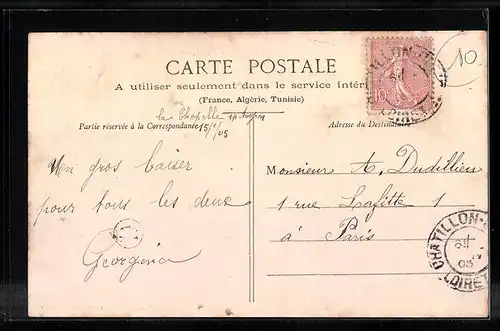 CARTE POSTALE
A utiliser seulement dans le service intéri
(France, Algérie, Tunisie)
La Chapelle
15/1/05
Partie réservée à la Correspondance
Adresse du Destinat
Un gros baiser
pour tous les deux
Georgina
Monsieur A. Dudillieu
1 rue Lafitte 1
à Paris
10
CHATILLON
LOIRET
CHATILLON-
05
LOIRET